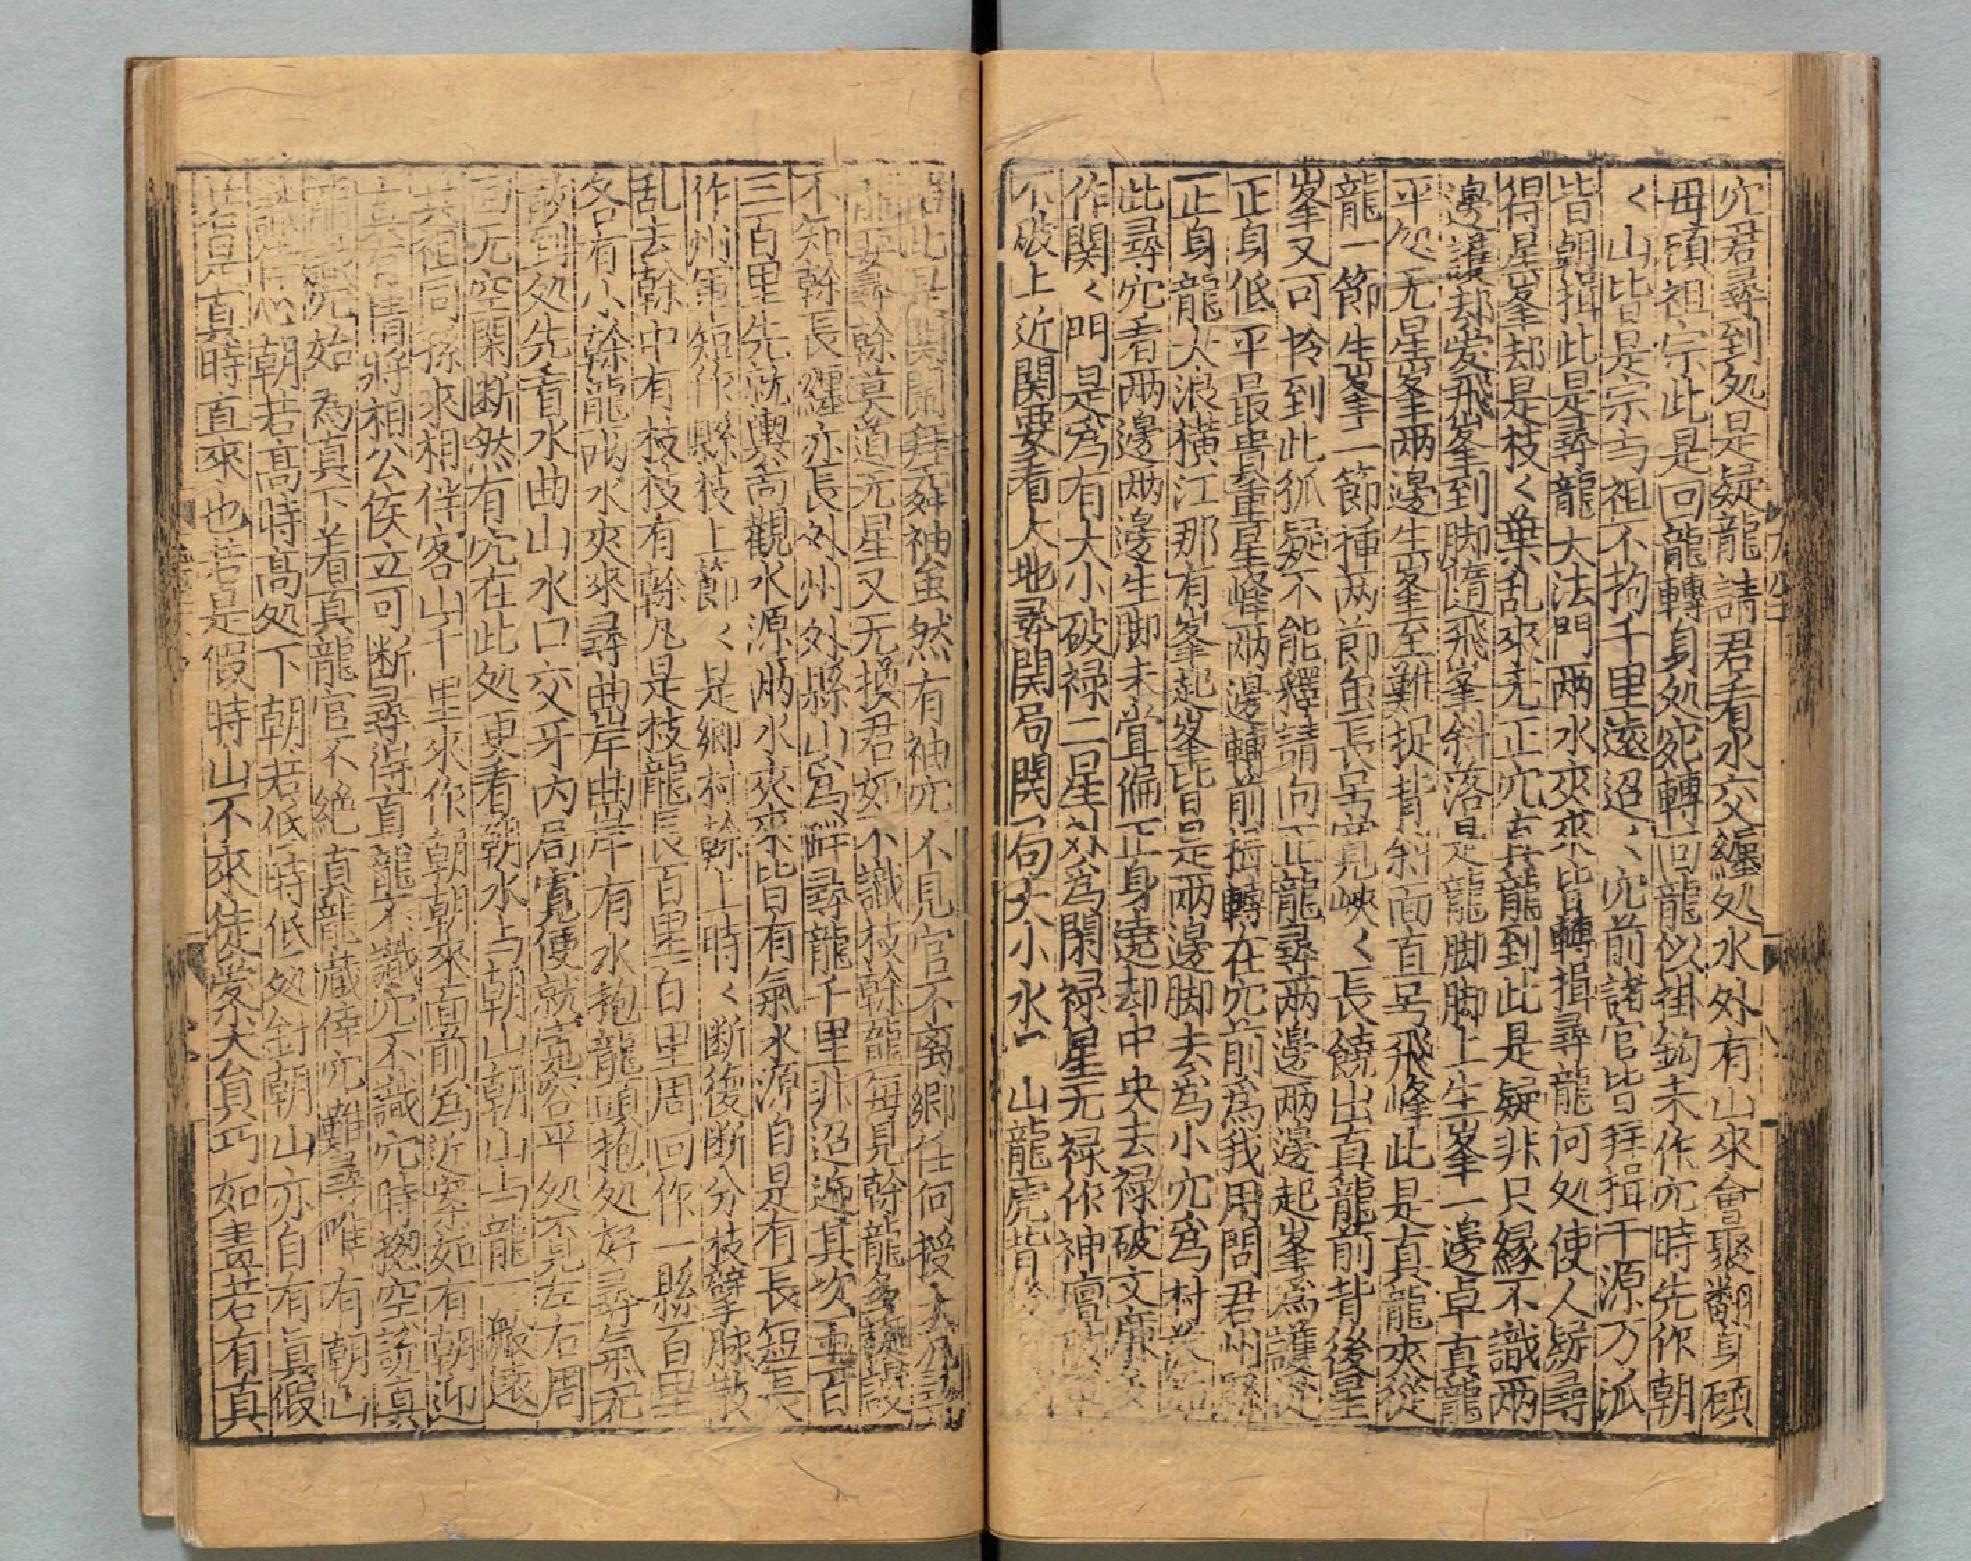 穴君尋到処是疑龍請君看水交纏処水外有山來會聚翻身顧
毋頋祖宗此是回龍轉身処宛轉回龍似掛鈎未作穴時先作朝
く山皆是宗与祖不拘千里遠迢、穴前諸官皆拜揖千源万泒
皆朝揖此是尋龍大法門兩水夾來皆轉揖尋龍何処使人疑尋
得星峯却是枝く葉乱來无正穴真龍到此是疑非只縁不識兩
邊護却安飛峯到脚隨飛峯斜落是龍脚脚上生峯一邊卓真龍
平処无星峯兩邊生峯至難捉背斜面直号飛峰此是真龍夾從
龍一節生峯一節揷兩節虽長号寛峽く長饒出真龍前背後星
峯又可怜到此狐疑不能釋請向正龍尋兩邊兩邊起峯爲護従
正身低平最貴重星峰兩邊轉前揖轉在穴前爲我用問君州縣
正身龍大浪橫江那有峯起峯皆是兩邊脚去爲小穴爲村落
此尋穴者兩邊兩邊生脚未嘗偏正身遶却中央去禄破文廉多
作関く門是爲有大小破禄二星外爲関禄星无禄作神壇破
不破上近関要看大地尋関局関局大小水口山龍虎皆
此是関闌拜舞袖虽然有袖穴不見官不离郷任何授大分尋
龍要尋幹莫道无星又无換君如不識枝幹龍每見幹龍多誕謾
不知幹長纏亦長外州外縣山爲伴尋龍千里非迢遞其次五百
三百里先就輿啚觀水源兩水夾來皆有氣水源自是有長短長
作州軍短作縣枝上節く是郷村幹上時く断復断分枝擘脉散
乱去幹中有枝枝有幹凡是枝龍長百里百里周回作一縣百里
各有小幹龍兩水夾來尋曲岸曲岸有水抱龍頭抱処好尋氣无
散到処先看水曲山水口交牙内局寛便就寛容平処覔左右周
回无空闕断然有穴在此処更看朝水与朝山朝山与龍一般遠
共祖同孫來相伴客山千里來作朝朝來面前爲近案如有朝迎
真有情將相公侯立可断尋得真龍不識穴不識穴時揔空說真
龍藏穴始為真下着真龍官不絶真龍藏倖穴難尋唯有朝山
識倖心朝若高時高処下朝若低時低処針朝山亦自有眞假
若是真時直來也若是假時山不來徒愛尖貟巧如畫若有真